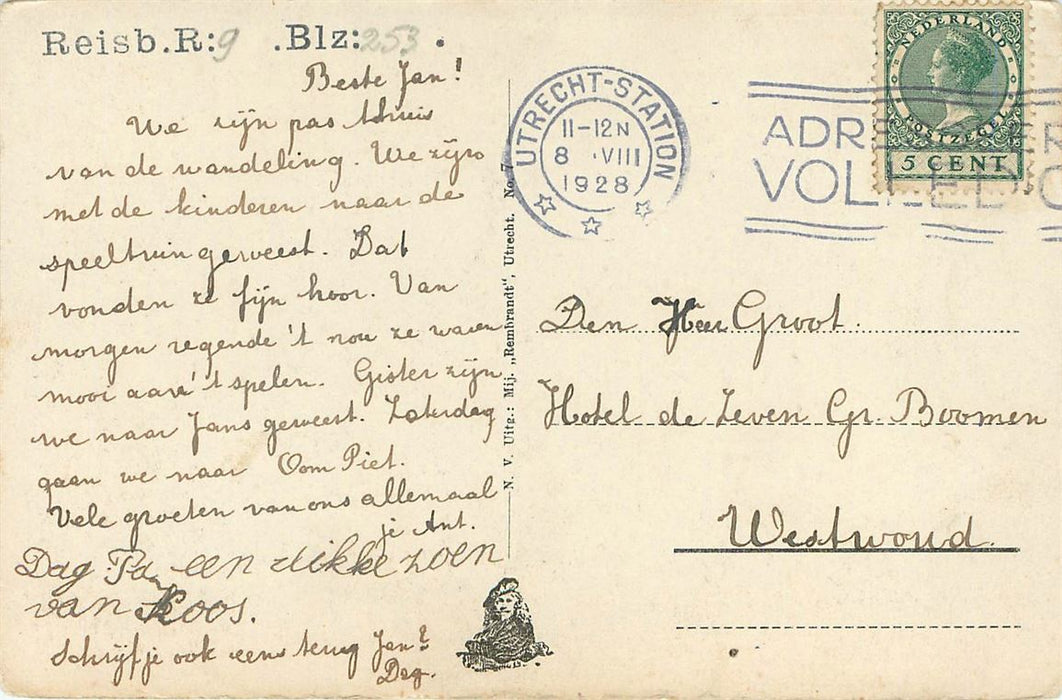 Reisb.R:9 .Blz:253 .
Beste Jan!
We zijn pas thuis
van de wandeling. We zijn
met de kinderen naar de
speeltuin geweest. Dat
vonden ze fijn hoor. Van
morgen regende 't nou ze waren
mooi aan 't spelen. Gister zijn
we naar Jans geweest. Zaterdag
gaan we naar Oom Piet.
Vele groeten van ons allemaal
je Ant.
Dag Pa een dikke zoen
van Koos.
Schrijf je ook eens terug Jan?
Dag.
N. V. Uitg.: Mij. „Rembrandt", Utrecht. No. 7
UTRECHT-STATION
11-12N
8 .VIII
1928
ADR
VOL
NEDERLAND
POSTZEGEL
5 CENT
Den Heer Groot.
Hotel de Zeven Gr. Boomen
Westwoud.